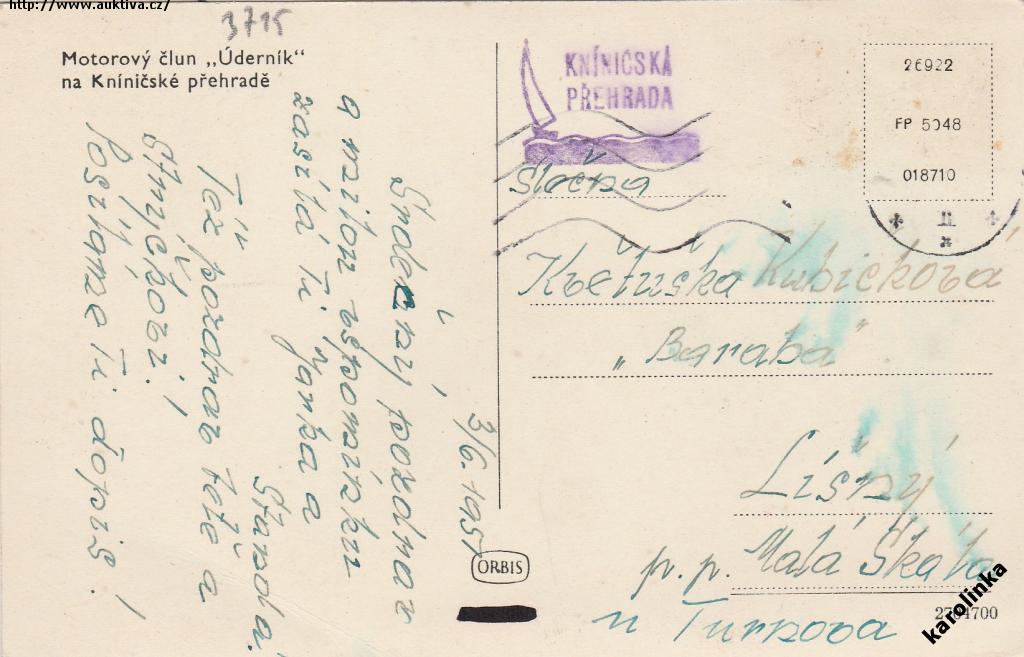 http://www.auktiva.cz/
3715
Motorový člun „Úderník“
na Kníničské přehradě
3/6. 1951
Srdečný pozdrav
a milou vzpomínku
zasílá Ti Jarka a
Standa.
Též pozdrav tetě a
strýčkovi!
Posílame Ti dopis!
ORBIS
KNÍNIČSKÁ
PŘEHRADA
26922
FP 5048
018710
Slečna
Květuška Kubíčková
„Baraba“
Líšný
p. p. Malá Skála
u Turnova
2704700
karolinka